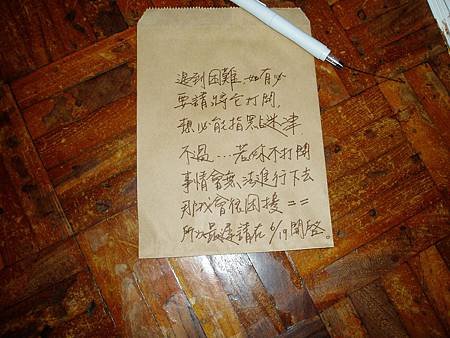 遇到困難,如有必
要請將它打開,
想必能指點迷津
不過...若妳不打開
事情會無法進行下去
那我會很困擾==
所以最遲請在6/19開啟。